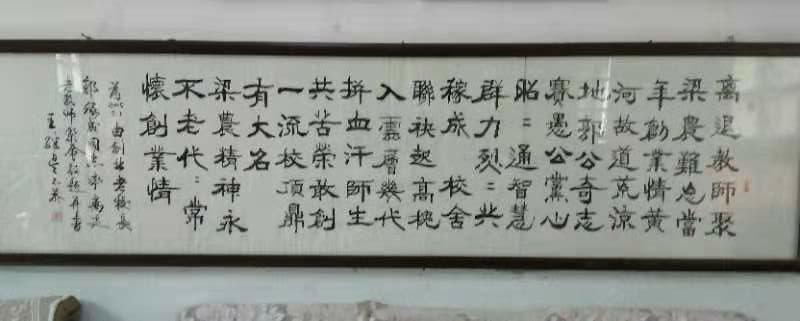 離退教師聚
梁農難忘當
年創業情黃
河故道荒涼
地郭公奇志
賽愚公黨心
昭〻通智慧
群力烈〻共
稼成 校舍
聯袂起高槐
入雲層幾代
拼血汗師生
共苦榮敢創
一流校頂鼎
有大名
梁農精神永
不老代〻常
懷創業情
由創業老校長
同志率離退
老教師聚會